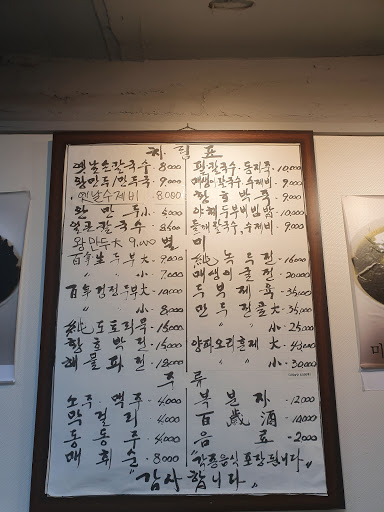 차림표
옛날손칼국수 · 8,000
왕만두/만두국 · 9,000
옛날수제비 · 8,000
왕만두小 · 5,000
얼큰칼국수 · 8,500
왕만두大 9,000
생두부大 · 9,000
〃 小 · 7,000
두부大 · 10,000
〃 小 · 8,000
純도토리묵 · 15,000
황호박전 · 15,000
해물파전 · 18,000
팥칼국수·동지죽 · 10,000
매생이칼국수·수제비 · 9,000
황호박죽 · 9,000
야채두부비빔밥 · 10,000
들깨칼국수·수제비 · 9,000
별미
純녹두전 · 16,000
매생이굴전 · 20,000
두부제육 · 35,000
만두전골大 · 35,000
〃 小 · 25,000
양파오리훈제大 · 43,000
〃 小 · 30,000
주류
소주 맥주 · 4,000
막걸리 · 4,000
동동주 · 4,000
매취순 · 8,000
복분자 · 12,000
百歲酒 · 10,000
음료 · 2,000
"각종음식 포장됩니다"
"감사합니다"